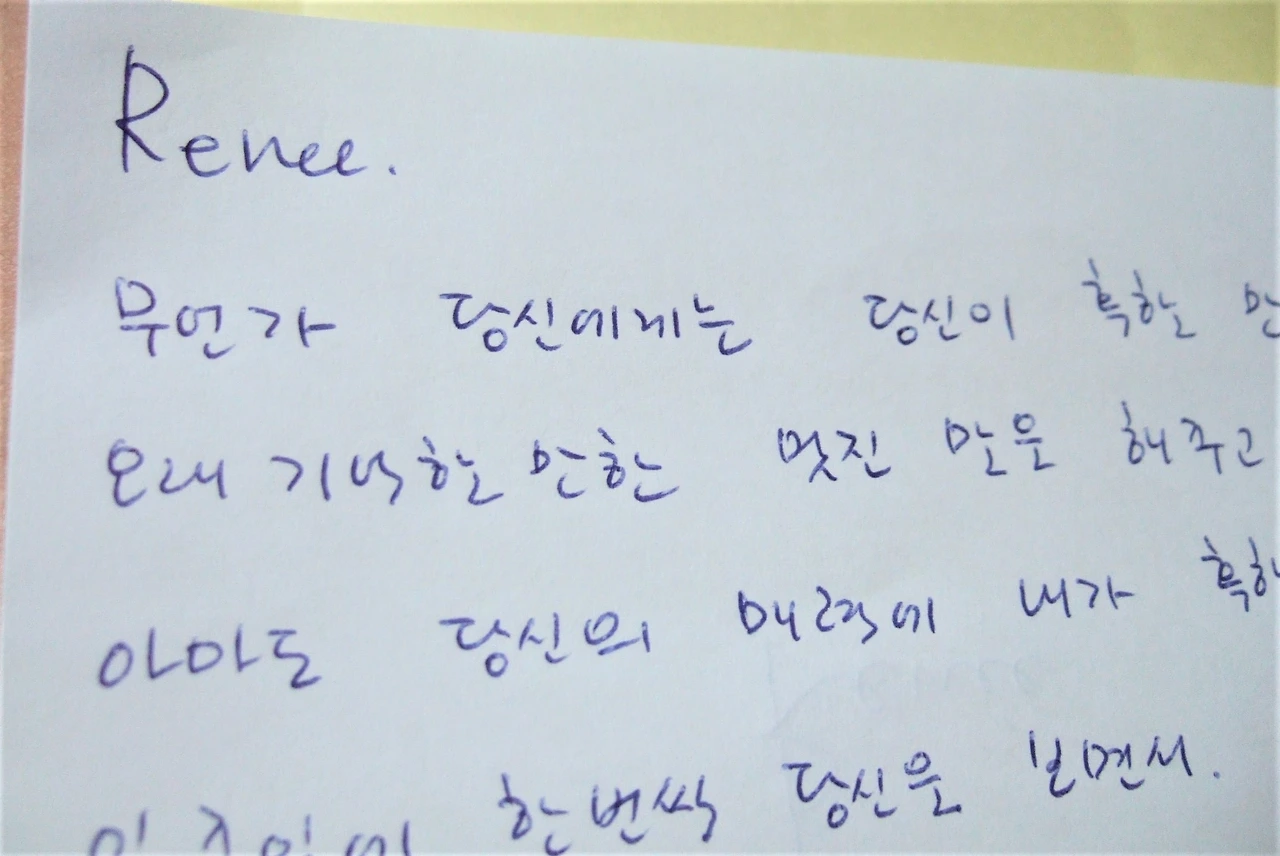 Renee.
무언가 당신에게는 당신이 혹할
오래 기억할 만한 멋진 말을 해주고
아마도 당신의 매력에 내가
한번씩 당신을 보면서.